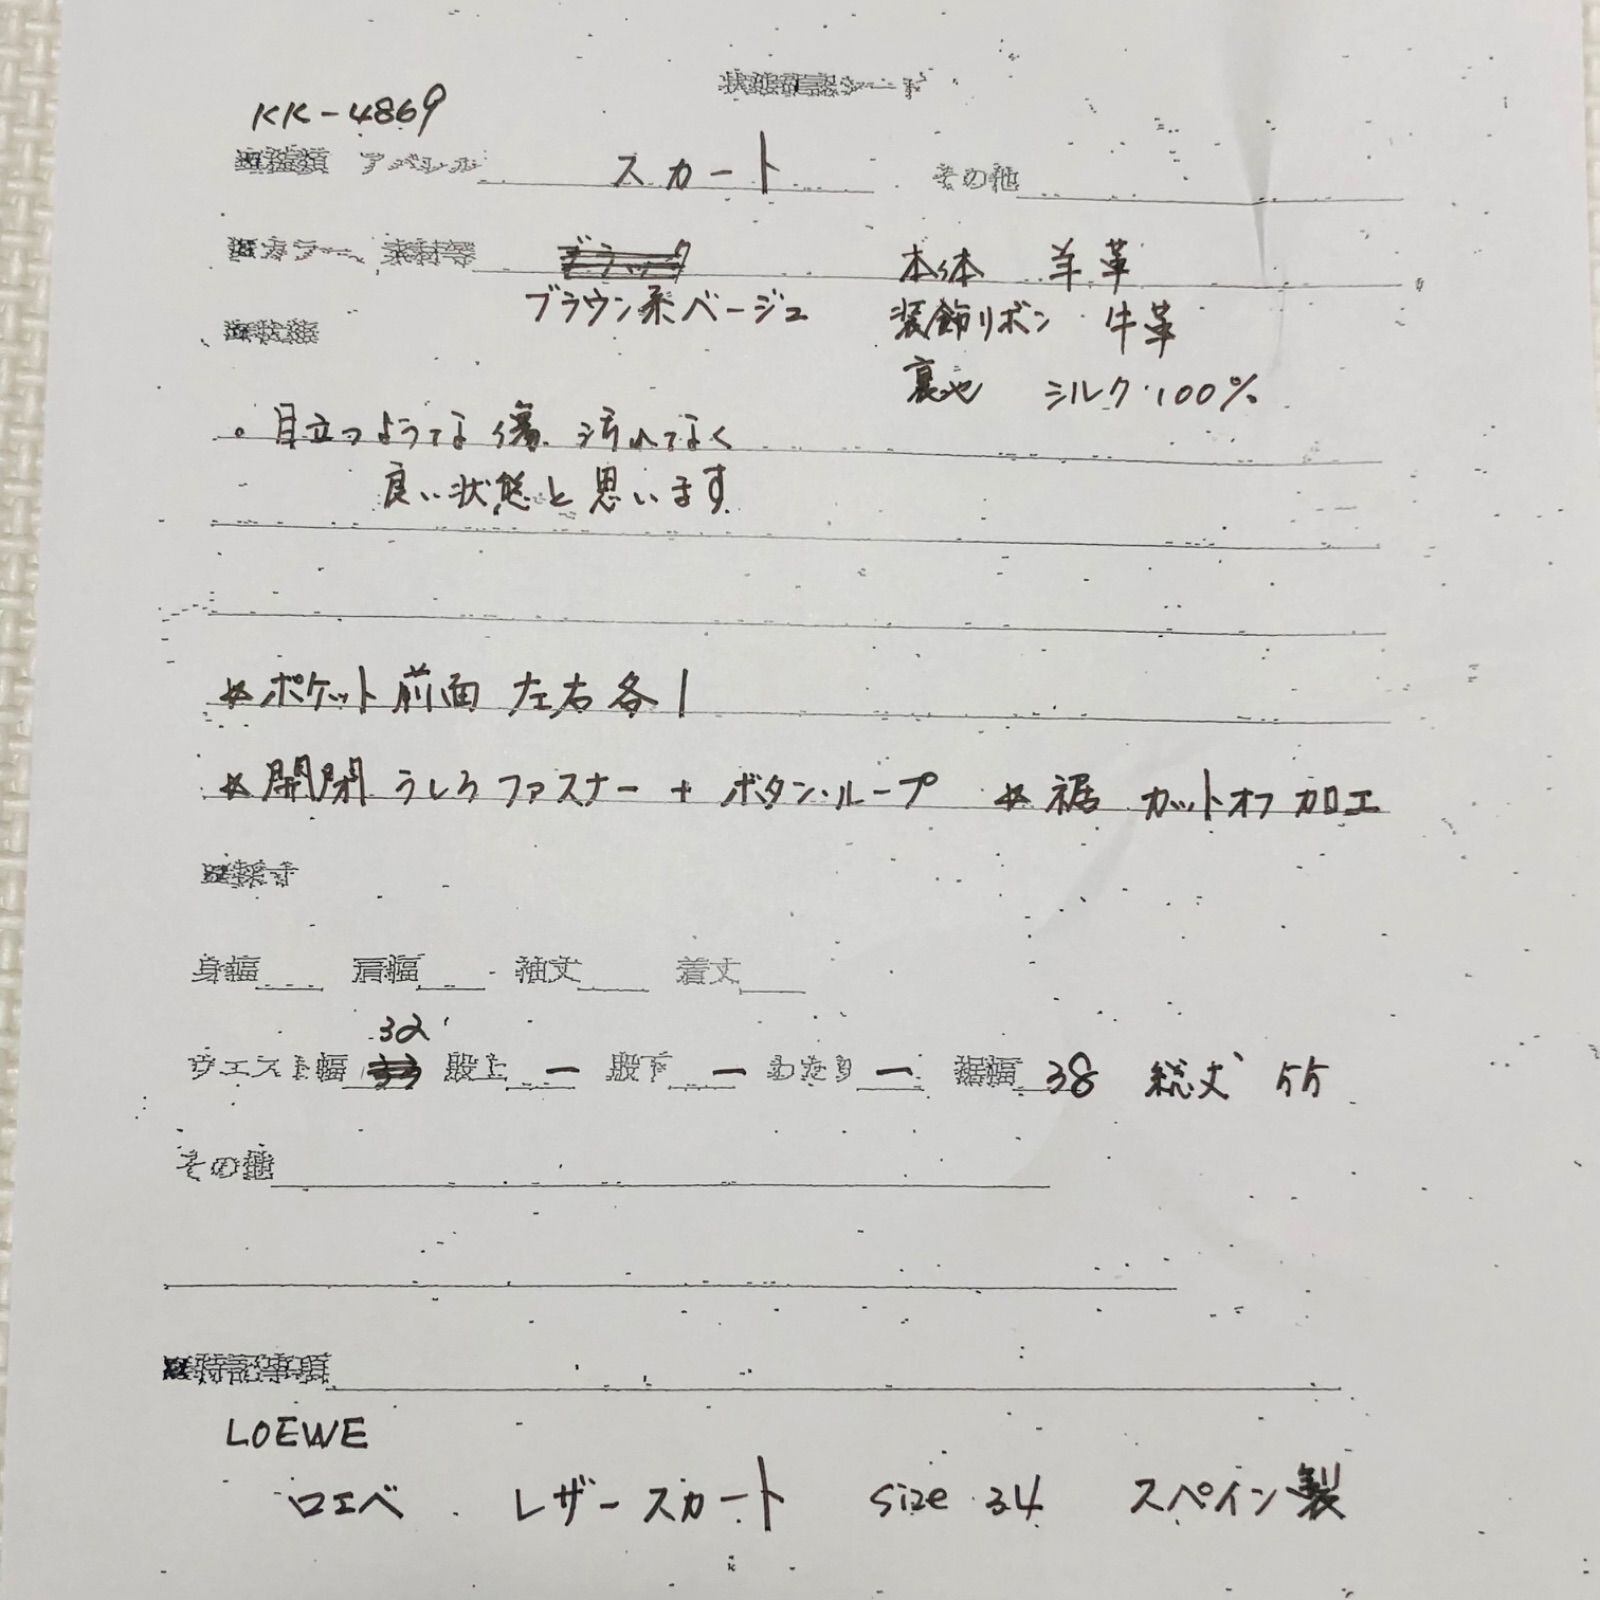 状態確認シート
KK-4869
種類 アパレル スカート その他
カラー、素材等 ブラック 本体 羊革
ブラウン系ベージュ 装飾リボン 牛革
状態
裏地 シルク 100%
。目立つような傷、汚れなく
良い状態と思います
*ポケット前面 左右各1
*開閉 うしろファスナー + ボタン・ループ *裾 カットオフ加工
採寸
身幅 肩幅 袖丈 着丈
32
ウエスト幅 股上 ー 股下 ー わたり ー 裾幅 38 総丈 55
その他
特記事項
LOEWE
ロエベ レザースカート size 34 スペイン製